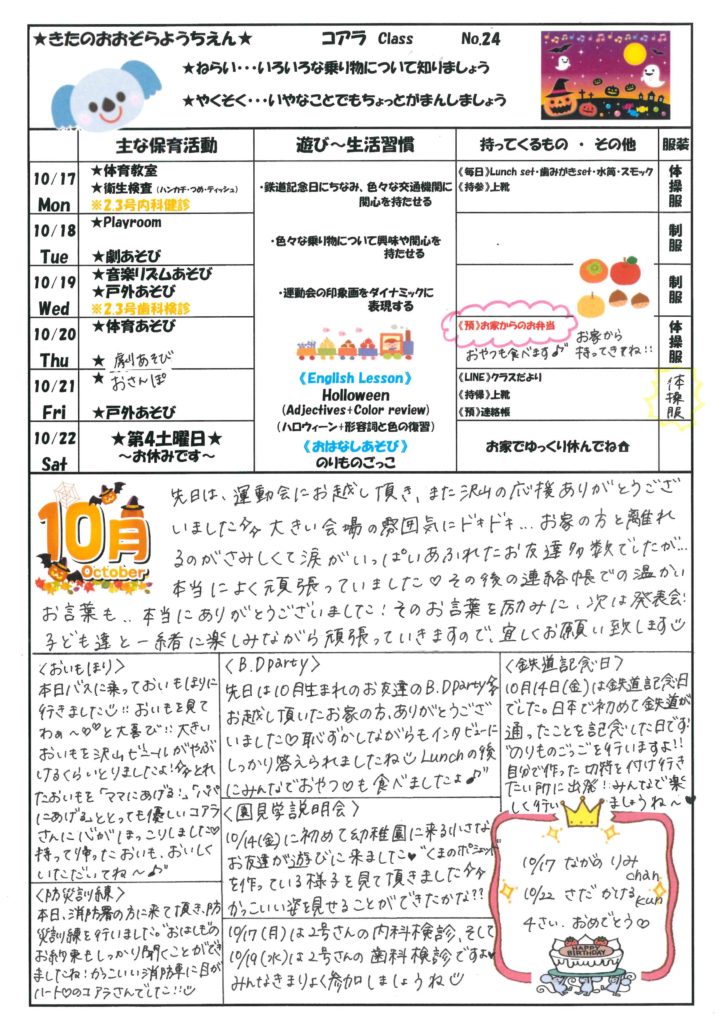 ★きたのおおぞらようちえん★ コアラ Class No.24
★ねらい・・・いろいろな乗り物について知りましょう
★やくそく・・・いやなことでもちょっとがまんしましょう
主な保育活動 遊び～生活習慣 持ってくるもの ・ その他 服装
10/17 Mon
★体育教室
★衛生検査（ハンカチ・つめ・ティッシュ）
※2.3号内科健診
・鉄道記念日にちなみ、色々な交通機関に
関心を持たせる
《毎日》Lunch set・歯みがきset・水筒・スモック
《持参》上靴
体操服
10/18 Tue
★Playroom
★劇あそび
・色々な乗り物について興味や関心を
持たせる
制服
10/19 Wed
★音楽リズムあそび
★戸外あそび
※2.3号歯科検診
・運動会の印象画をダイナミックに
表現する
制服
10/20 Thu
★体育あそび
★劇あそび
《預》お家からのお弁当
おやつも食べます♪
お家から
持ってきてね!!
体操服
10/21 Fri
★おさんぽ
★戸外あそび
《English Lesson》
Holloween
(Adjectives+Color review)
(ハロウィーン+形容詞と色の復習)
《LINE》クラスだより
《持帰》上靴
《預》連絡帳
体操服
10/22 Sat
★第4土曜日★
～お休みです～
《おはなしあそび》
のりものごっこ
お家でゆっくり休んでね
10月
October
先日は、運動会にお越し頂き、また沢山の応援ありがとうござ
いました 大きい会場の雰囲気にドキドキ...お家の方と離れ
るのがさみしくて涙がいっぱいあふれたお友達多数でしたが...
本当によく頑張っていました♡その後の連絡帳での温かい
お言葉も..本当にありがとうございました!そのお言葉を励みに、次は発表会!
子ども達と一緒に楽しみながら頑張っていきますので、宜しくお願い致します
〈おいもほり〉
本日バスに乗っておいもほりに
行きました!!おいもを見て
わぁ～♡と大喜び!!大きい
おいもを沢山ビニールがやぶ
けるくらいとりましたよ!とれ
たおいもを「ママにあげる!」「パパ
にあげる」ととっても優しいコアラ
さんに心がほっこりしました♡
持って帰ったおいも、おいしく
いただいてね～♪
〈防災訓練〉
本日、消防署の方に来て頂き、防
災訓練を行いました。おはしもの
お約束もしっかり聞くことができ
ましたね!かっこいい消防車に目が
ハート♡のコアラさんでした!!
〈B.Dparty〉
先日は10月生まれのお友達のB.Dparty
お越し頂いたお家の方、ありがとうござ
いました♡恥ずかしながらもインタビューに
しっかり答えられましたね Lunchの後
にみんなでおやつ♡も食べましたよ♪
〈園見学説明会〉
10/14(金)に初めて幼稚園に来る小さな
お友達が遊びに来ました♥"くまのポシェット"
を作っている様子を見て頂きました
かっこいい姿を見せることができたかな??
10/17(月)は2号さんの内科検診、そして
10/19(水)は2号さんの歯科検診ですよ♥
みんなきまりよく参加しましょうね
〈鉄道記念日〉
10月14日(金)は鉄道記念日
でした。日本で初めて鉄道が
通ったことを記念した日です!
"のりものごっこ"を行いますよ!!
自分で作った切符を付け行き
たい所に出発!!みんなで楽
しく行いましょうね～♥
10/17 ながら りみchan
10/22 さだ かけるkun
4さい、おめでとう♡
HAPPY BIRTHDAY